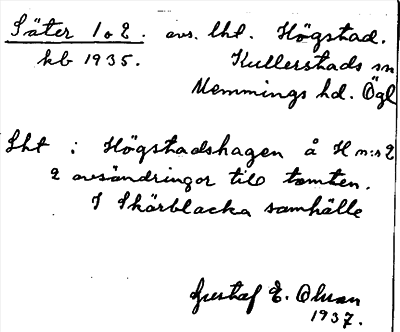 Säter 1 o 2. avs. lht. Högstad.
kb 1935. Kullerstads sn
Memmings hd. Ögl
Lht i Högstadshagen å H n:r 2
2 avsöndringor till tomten.
I Skärblacka samhälle
Gustaf E. Olsson
1937.